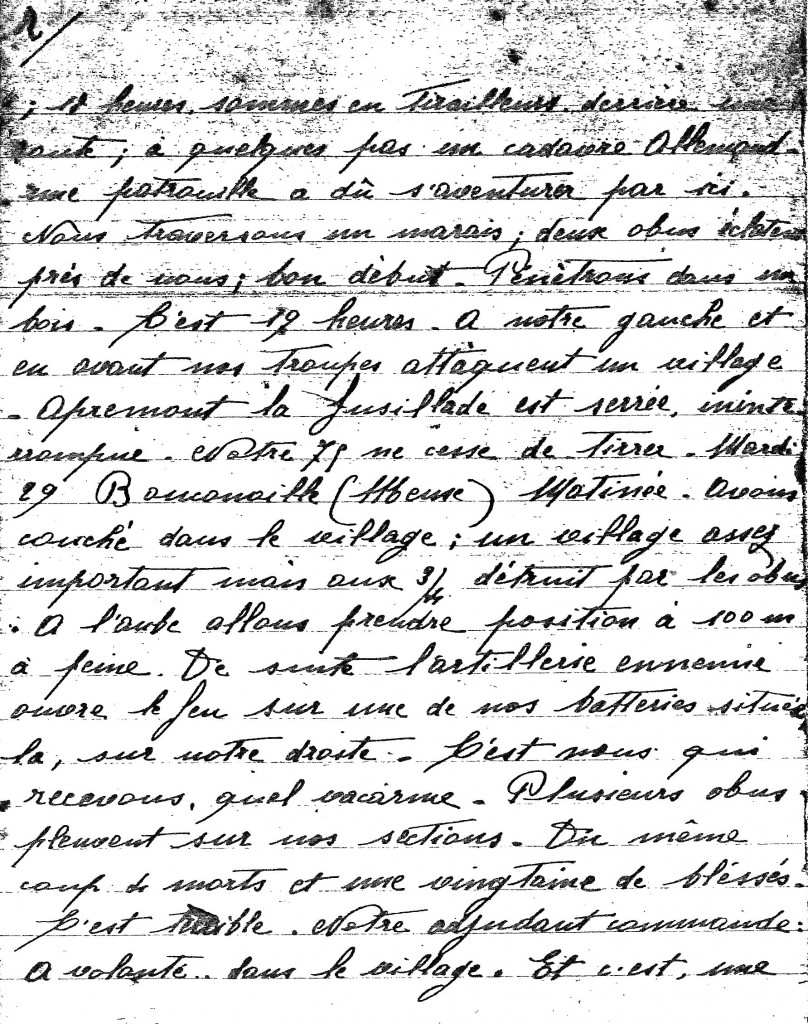 2/
; 18 heures. sommes en tirailleurs. derrière une
route ; à quelques pas un cadavre Allemand.
une patrouille a dû s'aventurer par ici.
Nous traversons un marais ; deux obus éclatent
près de nous ; bon début. Pénètrons dans un
bois. C'est 19 heures. A notre gauche et
en avant nos troupes attaquent un village
- Apremont la fusillade est serrée, ininte-
rrompue. Notre 75 ne cesse de tirrer. Mardi
29 (Meuse) Matinée. Avons
couché dans le village ; un village assez
important mais aux 3/4 détruit par les obus
. A l'aube allons prendre position à 100 m
à peine. De suite l'artillerie ennemie
ouvre le feu sur une de nos batteries située
la, sur notre droite. C'est nous qui
recevons, quel vacarme. Plusieurs obus
pleuvent sur nos sections. Du même
coup de morts et une vingtaine de bléssés.
C'est terrible. Notre adjudant commande :
A volonté.. dans le village. Et c'est, une